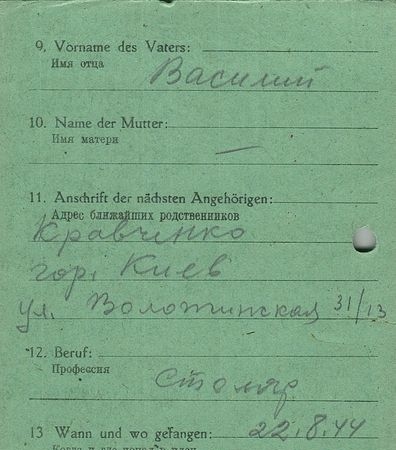 9. Vorname des Vaters:
Имя отца
Василий
10. Name der Mutter:
Имя матери
—
11. Anschrift der nächsten Angehörigen:
Адрес ближайших родственников
Кравченко
гор. Киев
ул. Воложинская 31/13
12. Beruf:
Профессия
Столяр
13 Wann und wo gefangen: 22.8.44